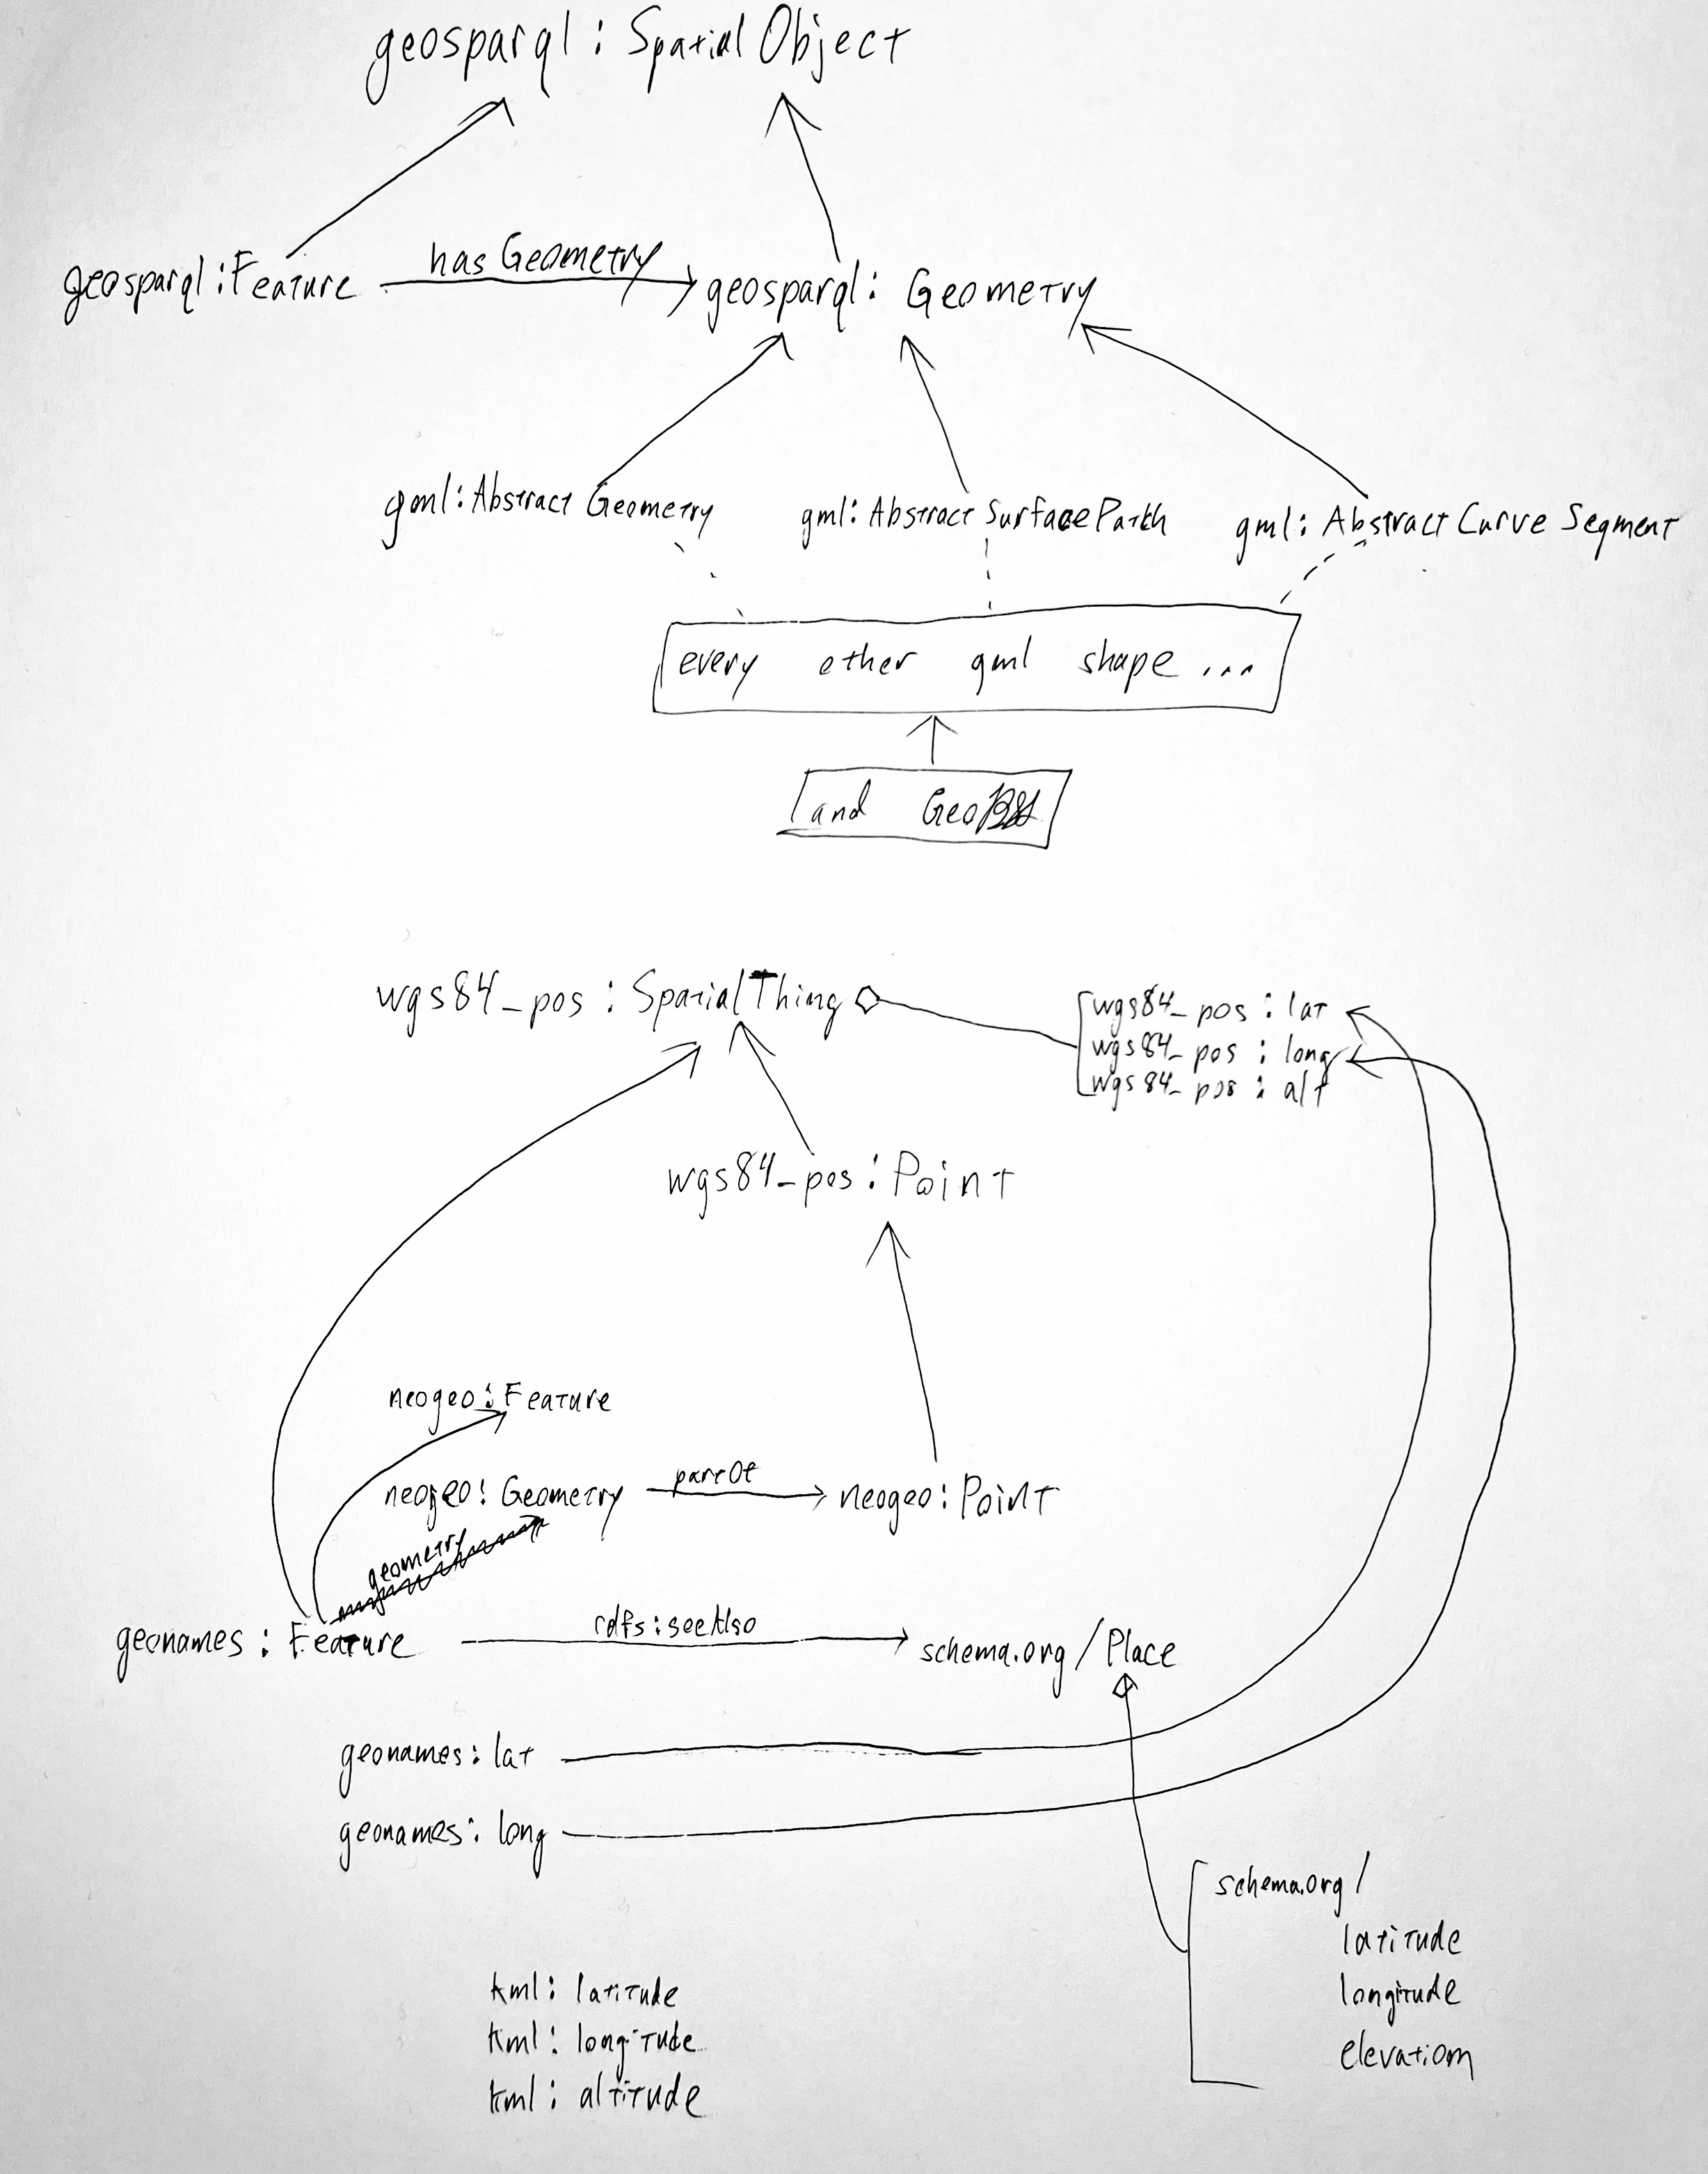 geosparql : SpatialObject
hasGeometry
geosparql : Feature
geosparql : Geometry
gml : AbstractGeometry
gml : AbstractSurfacePatch
gml : AbstractCurveSegment
every other gml shape ...
and
wgs84_pos : SpatialThing
wgs84_pos : lat
wgs84_pos : long
wgs84_pos : alt
wgs84_pos : Point
neogeo : Feature
neogeo : Geometry
partOf
neogeo : Point
geometry
geonames : Feature
rdfs:seeAlso
schema.org / Place
geonames : lat
geonames : long
schema.org /
latitude
longitude
elevation
kml : latitude
kml : longitude
kml : altitude